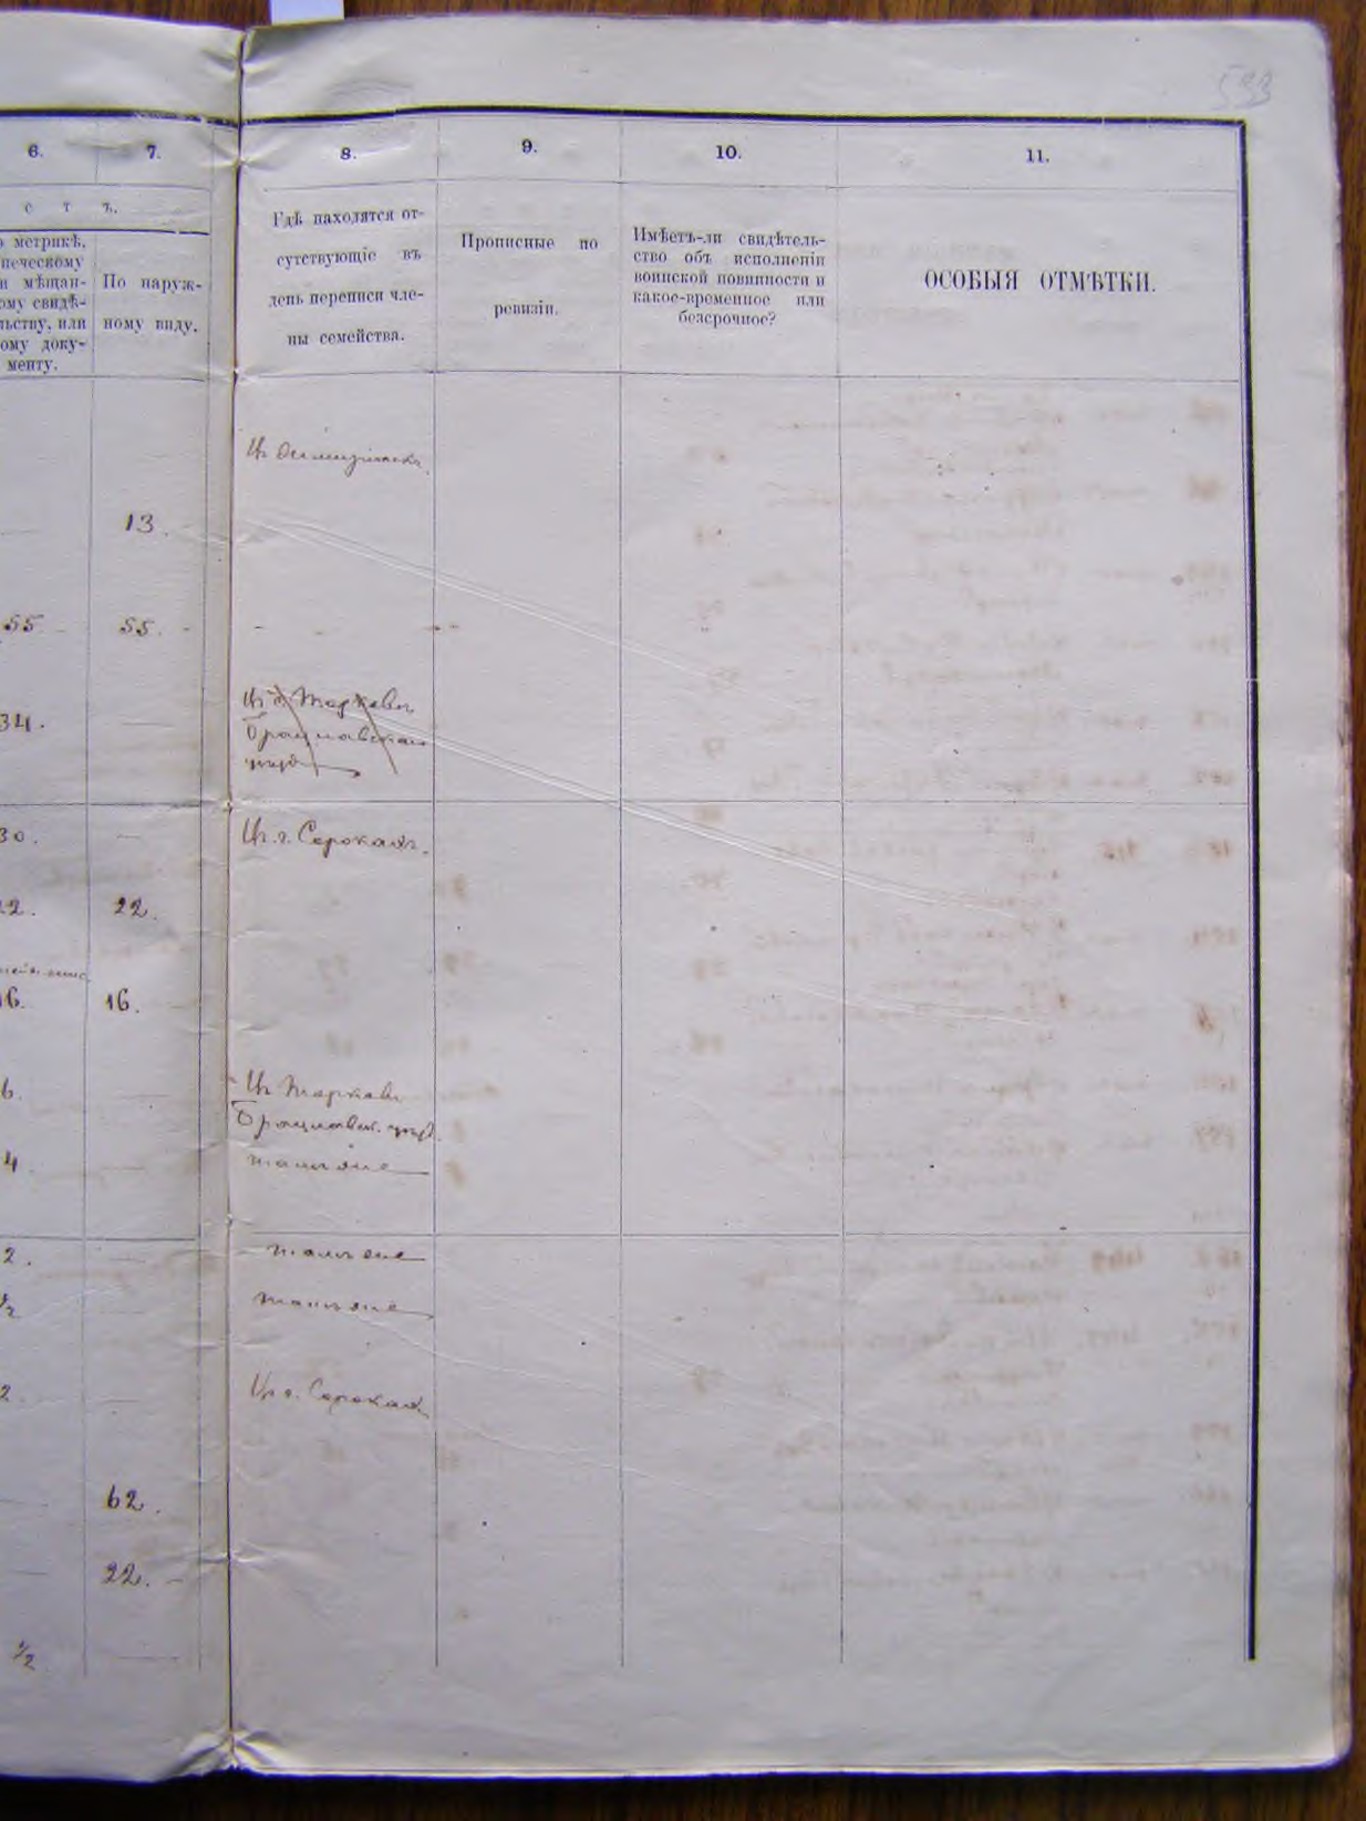 593
6.
7.
8.
9.
10.
11.
с т ъ.
о метрикѣ,
печескому
и мѣщан-
ому свидѣ-
льству, или
ому доку-
менту.
По наруж-
ному виду.
Гдѣ находятся от-
сутствующіе въ
день переписи чле-
ны семейства.
Прописные по
ревизіи.
Имѣетъ-ли свидѣтель-
ство объ исполненіи
воинской повинности и
какое-временное или
безсрочное?
ОСОБЫЯ ОТМѢТКИ.
Въ
13.
55. 55.
34.
Въ Шарковъ
Брацлавскаго
уѣзд
30. Въ г. Сорокахъ.
22. 22.
16. 16.
6. Въ Шарковъ
Брацлавск. уѣзд.
4. тамъ же
2. тамъ же
1/2 тамъ же
2. Въ г. Сорокахъ
62.
22.
1/2